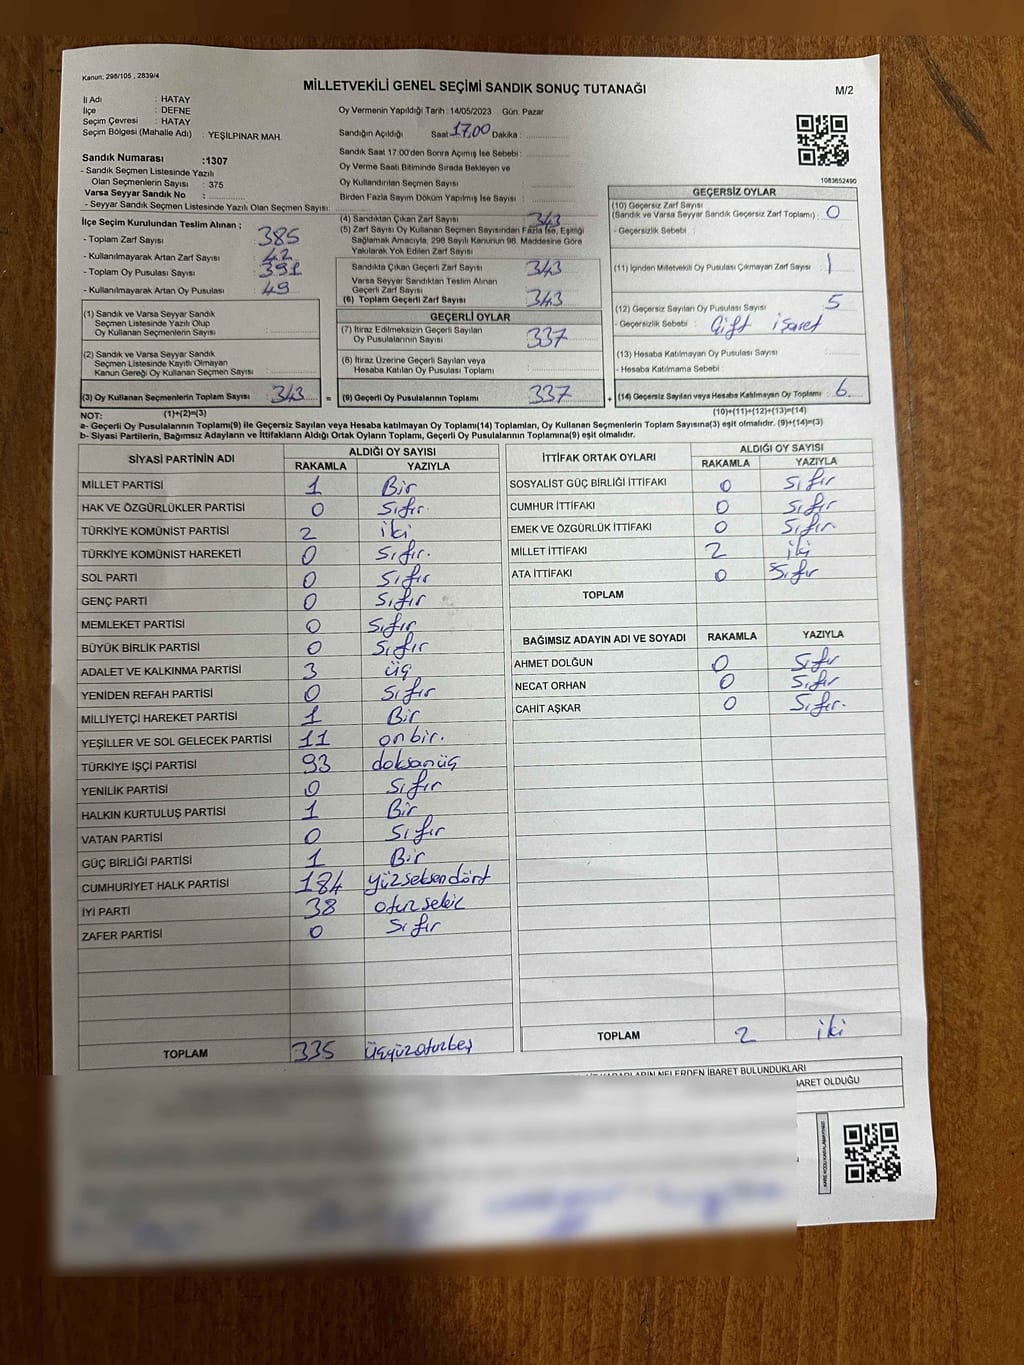 Kanun: 298/105 , 2839/4
MİLLETVEKİLİ GENEL SEÇİMİ SANDIK SONUÇ TUTANAĞI
M/2
İl Adı : HATAY
İlçe : DEFNE
Seçim Çevresi : HATAY
Seçim Bölgesi (Mahalle Adı) : YEŞİLPINAR MAH.
Oy Vermenin Yapıldığı Tarih : 14/05/2023 Gün: Pazar
Sandığın Açıldığı Saat 17.00 Dakika :
Sandık Saat 17.00'den Sonra Açımış İse Sebebi :
Oy Verme Saati Bitiminde Sırada Bekleyen ve
Oy Kullandırılan Seçmen Sayısı :
Birden Fazla Sayım Döküm Yapılmış İse Sayısı :
Sandık Numarası :1307
- Sandık Seçmen Listesinde Yazılı
Olan Seçmenlerin Sayısı : 375
Varsa Seyyar Sandık No :
- Seyyar Sandık Seçmen Listesinde Yazılı Olan Seçmen Sayısı:
1083652490
İlçe Seçim Kurulundan Teslim Alınan ;
- Toplam Zarf Sayısı : 385
- Kullanılmayarak Artan Zarf Sayısı : 42
- Toplam Oy Pusulası Sayısı : 391
- Kullanılmayarak Artan Oy Pusulası : 49
(1) Sandık ve Varsa Seyyar Sandık
Seçmen Listesinde Yazılı Olup
Oy Kullanan Seçmenlerin Sayısı :
(2) Sandık ve Varsa Seyyar Sandık
Seçmen Listesinde Kayıtlı Olmayan
Kanun Gereği Oy Kullanan Seçmen Sayısı :
(3) Oy Kullanan Seçmenlerin Toplam Sayısı : 343 =
(4) Sandıktan Çıkan Zarf Sayısı : 343
(5) Zarf Sayısı Oy Kullanan Seçmen Sayısından Fazla İse, Eşitliği
Sağlamak Amacıyla, 298 Sayılı Kanunun 98. Maddesine Göre
Yakılarak Yok Edilen Zarf Sayısı
Sandıkta Çıkan Geçerli Zarf Sayısı : 343
Varsa Seyyar Sandıktan Teslim Alınan
Geçerli Zarf Sayısı
(6) Toplam Geçerli Zarf Sayısı : 343
GEÇERLİ OYLAR
(7) İtiraz Edilmeksizin Geçerli Sayılan
Oy Pusulalarının Sayısı : 337
(8) İtiraz Üzerine Geçerli Sayılan veya
Hesaba Katılan Oy Pusulası Toplamı :
(9) Geçerli Oy Pusulalarının Toplamı : 337 +
GEÇERSİZ OYLAR
(10) Geçersiz Zarf Sayısı
(Sandık ve Varsa Seyyar Sandık Geçersiz Zarf Toplamı) : 0
- Geçersizlik Sebebi :
(11) İçinden Milletvekili Oy Pusulası Çıkmayan Zarf Sayısı : 1
(12) Geçersiz Sayılan Oy Pusulası Sayısı : 5
- Geçersizlik Sebebi : Çift işaret
(13) Hesaba Katılmayan Oy Pusulası Sayısı :
- Hesaba Katılmama Sebebi :
(14) Geçersiz Sayılan veya Hesaba Katılmayan Oy Toplamı : 6
NOT: (1)+(2)=(3) (10)+(11)+(12)+(13)=(14)
a- Geçerli Oy Pusulalarının Toplamı(9) ile Geçersiz Sayılan veya Hesaba katılmayan Oy Toplamı(14) Toplamları, Oy Kullanan Seçmenlerin Toplam Sayısına(3) eşit olmalıdır. (9)+(14)=(3)
b- Siyasi Partilerin, Bağımsız Adayların ve İttifakların Aldığı Ortak Oyların Toplamı, Geçerli Oy Pusulalarının Toplamına(9) eşit olmalıdır.
SİYASİ PARTİNİN ADI ALDIĞI OY SAYISI
RAKAMLA YAZIYLA
MİLLET PARTİSİ 1 Bir
HAK VE ÖZGÜRLÜKLER PARTİSİ 0 Sıfır.
TÜRKİYE KOMÜNİST PARTİSİ 2 iki
TÜRKİYE KOMÜNİST HAREKETİ 0 Sıfır.
SOL PARTİ 0 Sıfır
GENÇ PARTİ 0 Sıfır
MEMLEKET PARTİSİ 0 Sıfır
BÜYÜK BİRLİK PARTİSİ 0 Sıfır
ADALET VE KALKINMA PARTİSİ 3 üç
YENİDEN REFAH PARTİSİ 0 Sıfır
MİLLİYETÇİ HAREKET PARTİSİ 1 Bir
YEŞİLLER VE SOL GELECEK PARTİSİ 11 onbir.
TÜRKİYE İŞÇİ PARTİSİ 93 doksanüç
YENİLİK PARTİSİ 0 Sıfır
HALKIN KURTULUŞ PARTİSİ 1 Bir
VATAN PARTİSİ 0 Sıfır
GÜÇ BİRLİĞİ PARTİSİ 1 Bir
CUMHURİYET HALK PARTİSİ 184 yüzseksendört
İYİ PARTİ 38 otuzsekiz
ZAFER PARTİSİ 0 Sıfır
TOPLAM 335 üçyüzotuzbeş
İTTİFAK ORTAK OYLARI ALDIĞI OY SAYISI
RAKAMLA YAZIYLA
SOSYALİST GÜÇ BİRLİĞİ İTTİFAKI 0 Sıfır
CUMHUR İTTİFAKI 0 Sıfır
EMEK VE ÖZGÜRLÜK İTTİFAKI 0 Sıfır
MİLLET İTTİFAKI 2 iki
ATA İTTİFAKI 0 Sıfır
TOPLAM
BAĞIMSIZ ADAYIN ADI VE SOYADI RAKAMLA YAZIYLA
AHMET DOLĞUN 0 Sıfır
NECAT ORHAN 0 Sıfır
CAHİT AŞKAR 0 Sıfır.
TOPLAM 2 iki
NELERDEN İBARET BULUNDUKLARI
BARET OLDUĞU